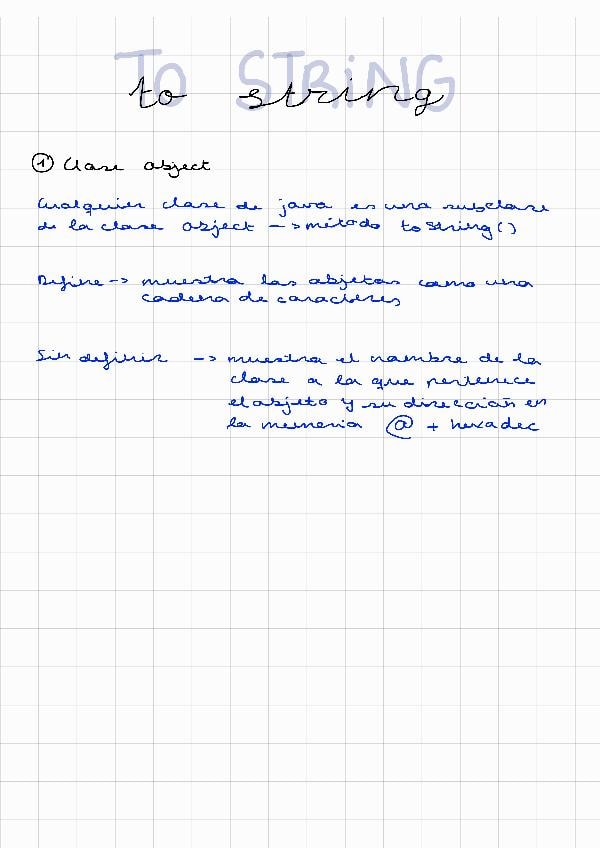 TO STRING
to string
① Clase object
Cualquier clase de java es una subclase
de la clase object -> método toString()
Define -> muestra los objetos como una
cadena de caracteres
Sin definir -> muestra el nombre de la
clase a la que pertenece
el objeto y su dirección en
la memoria @ + hexadec